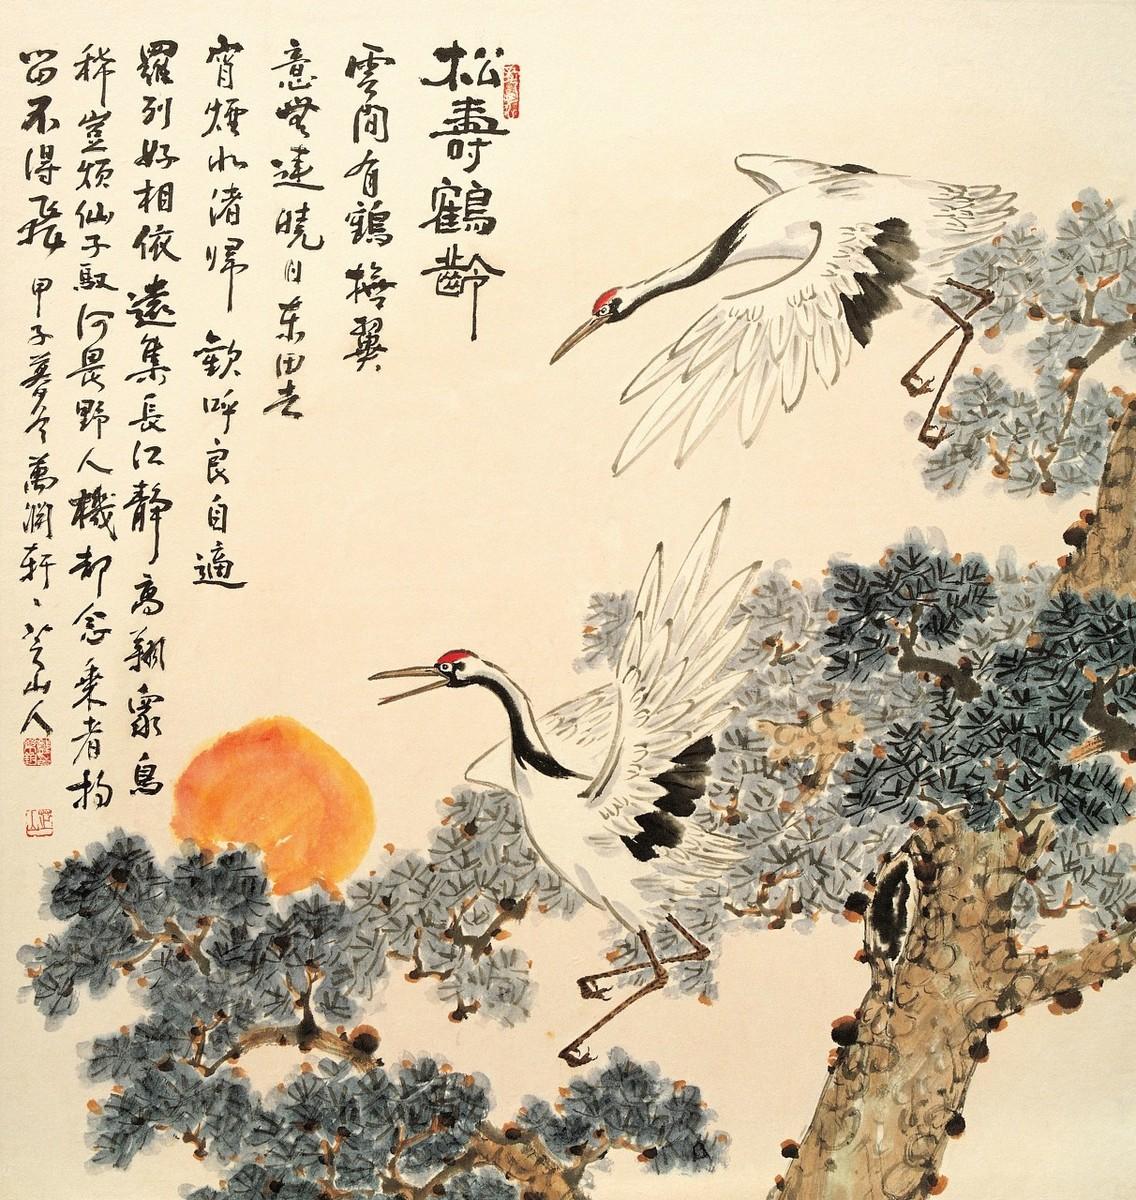 松壽鶴齡
雲間有鶴 撫翼
意無違 曉日東田去
宵煙水渚歸 歡呼良自適
羅列好相依 遠集長江靜 高翔眾鳥
稀 豈煩仙子馭 何畏野人機 却念乘者 拘
留不得飛 甲子暮冬 萬澗軒 山人